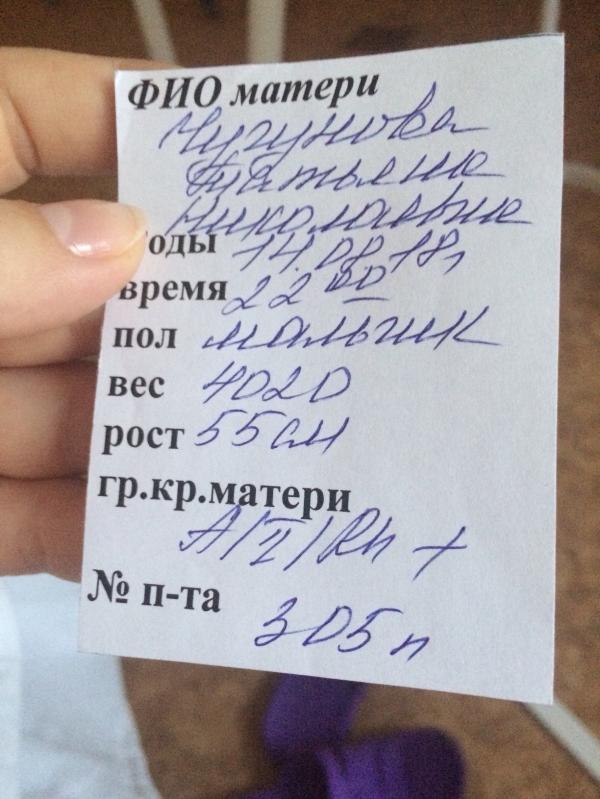 ФИО матери
Чугунова
Татьяна
Николаевна
оды 14.08.18г
время 22 00
пол мальчик
вес 4020
рост 55 см
гр.кр.матери
A/II/Rh +
№ п-та
305 п